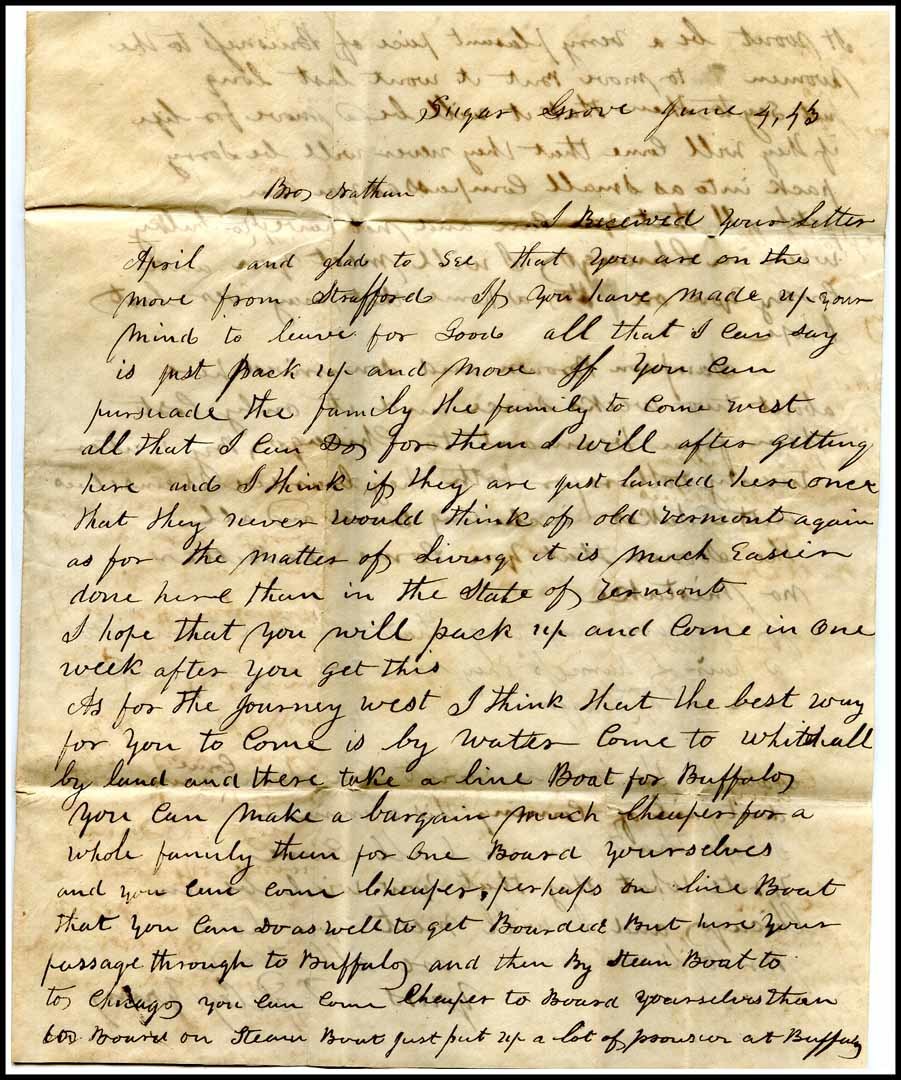 Sugar Grove June 4, 43
Bro Nathan
I Received Your Letter
April and glad to see that you are on the
move from Strafford If you have made up your
mind to leave for Good all that I can say
is just pack up and move If you can
pursuade the family the family to come west
all that I can Do for them I will after getting
here and I think if they are just landed here once
that they never would think of old Vermont again
as for the matter of Living it is much Easier
done here than in the State of Vermont
I hope that you will pack up and Come in One
week after you get this
As for the Journey west I think that the best way
for you to Come is by Watter Come to Whitehall
by land and there take a line Boat for Buffalo
You Can make a bargain much Cheaper for a
whole family then for One Board yourselves
and you can come Cheaper, perhaps on line Boat
that you Can Do as well to get Boarded But hire your
passage through to Buffalo and then By Steam Boat to
to Chicago you can Come Cheaper to Board yourselves than
Board on Steam Boat just put up a lot of provision at Buffalo